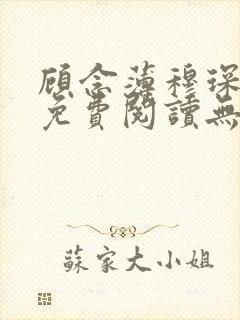 顾念薄穆琛
免費閱讀無
蘇家大小姐